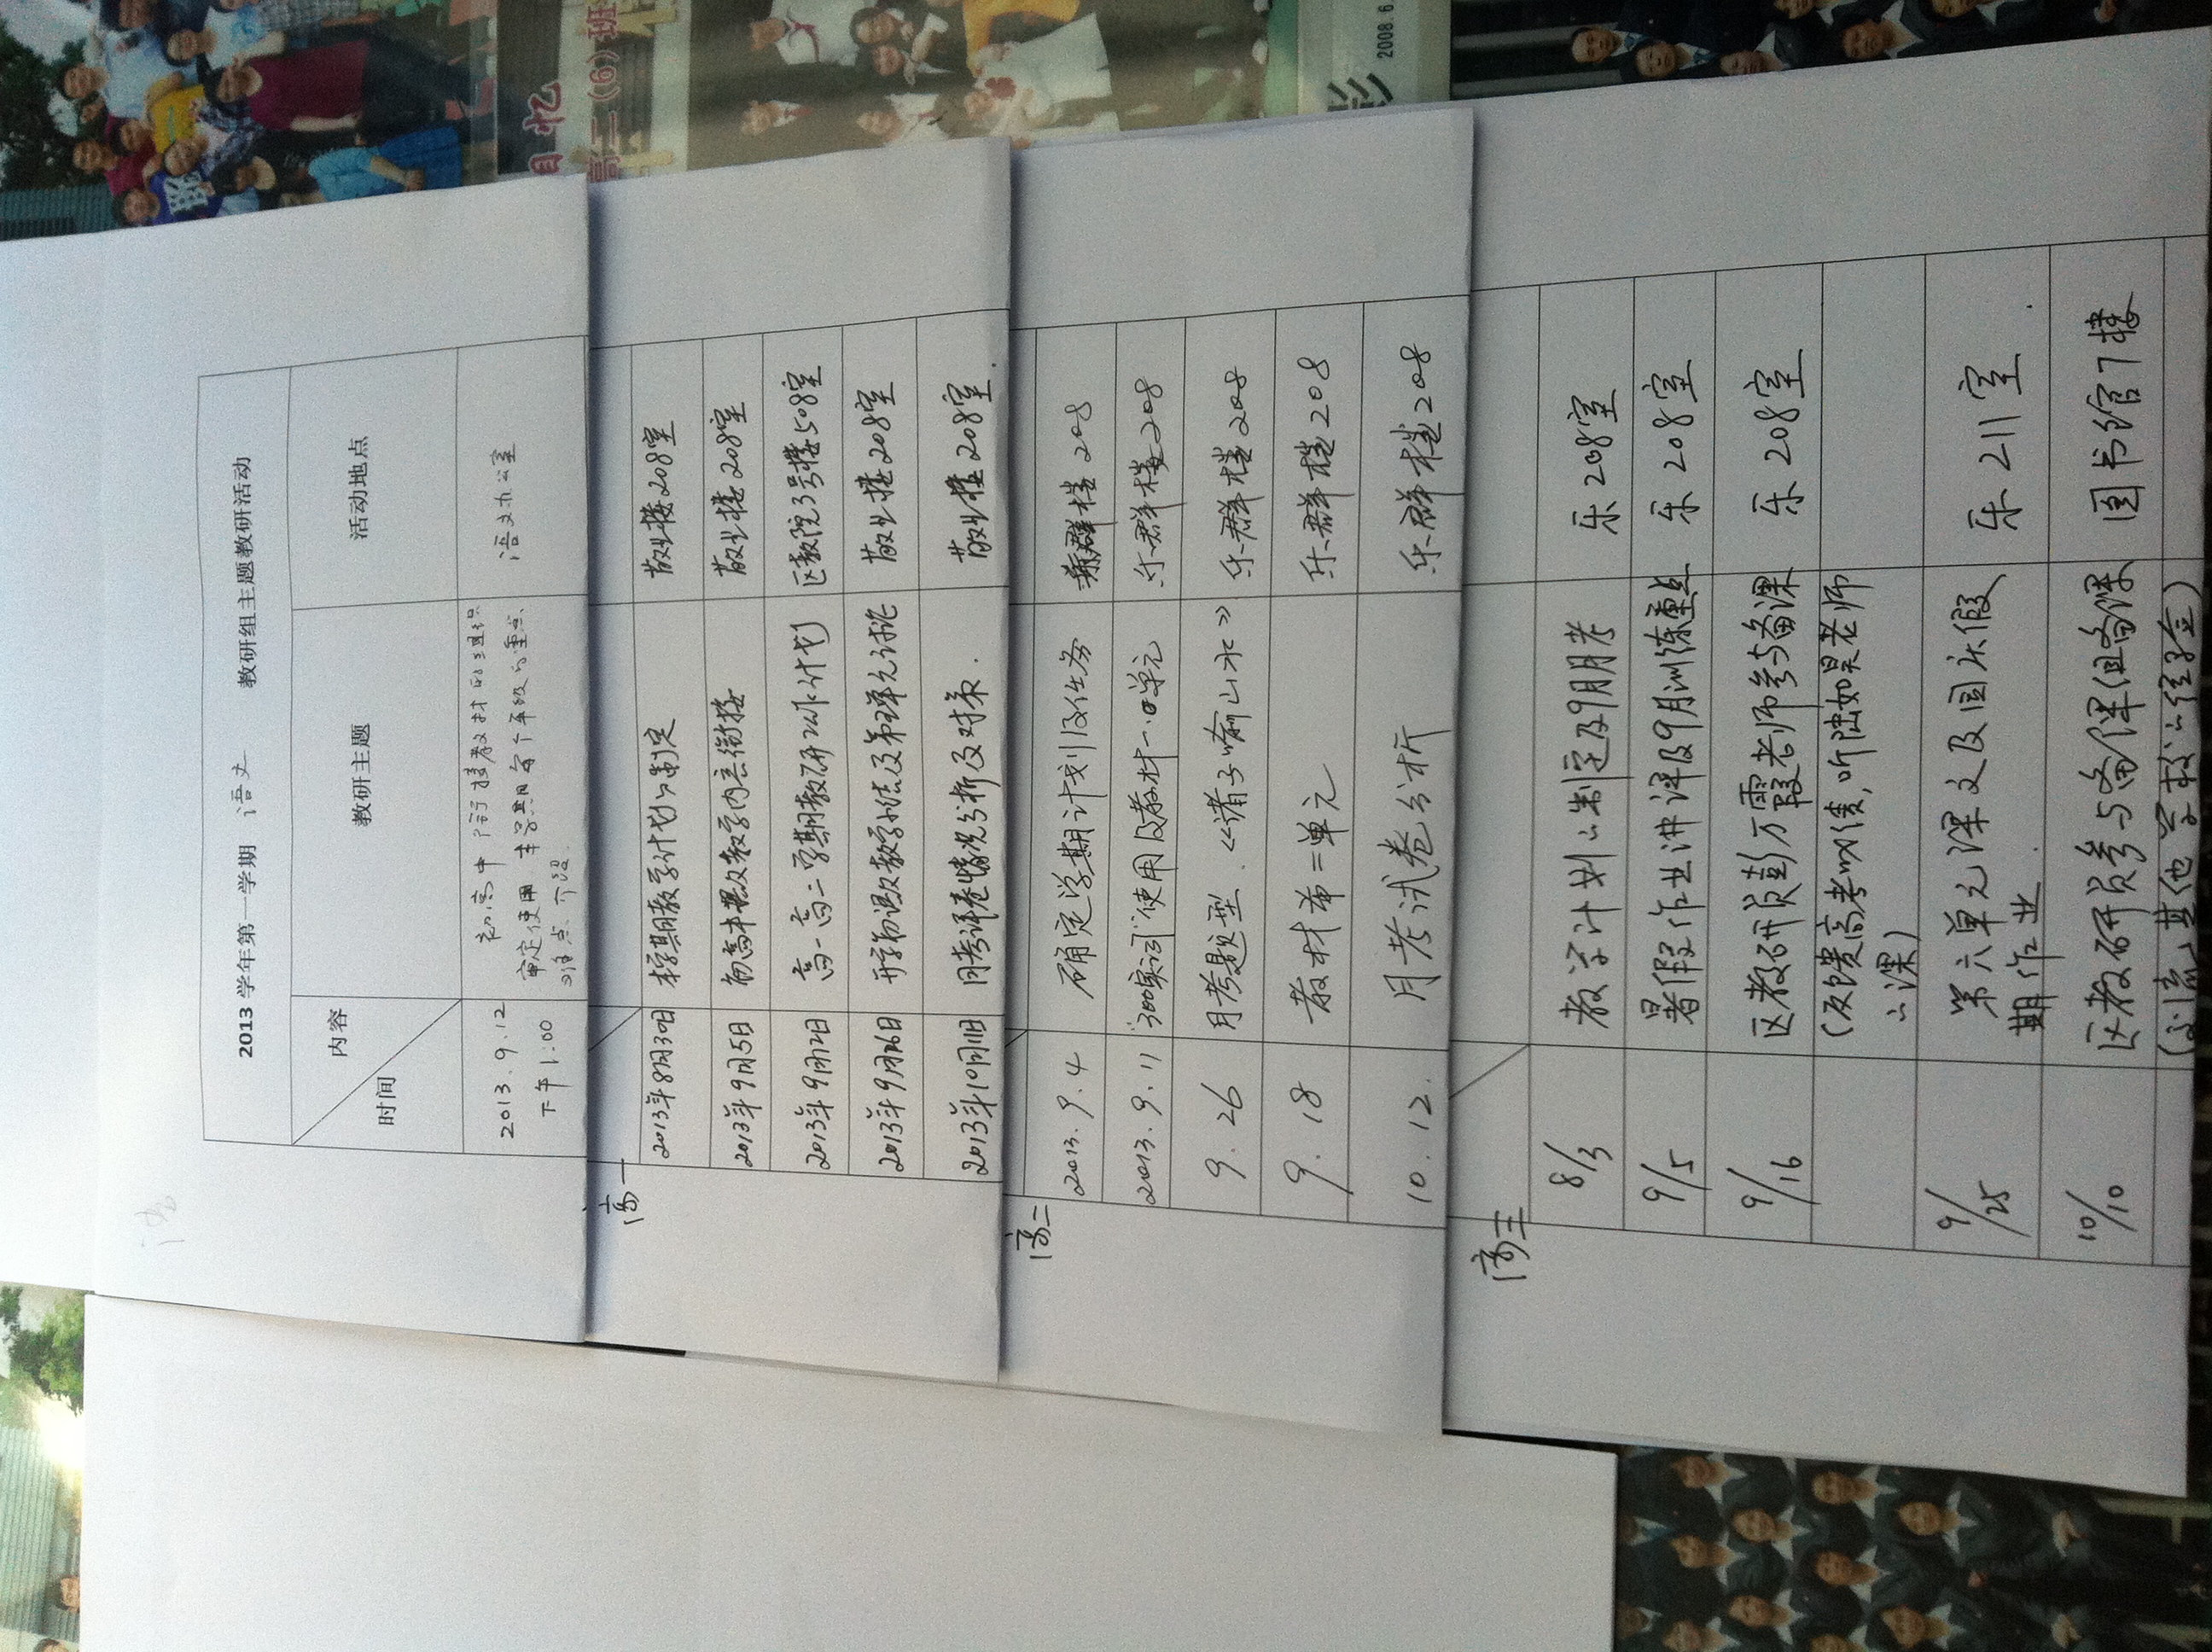 2013 学年第一学期 语文 教研组主题教研活动
内容
时间
教研主题
活动地点
2013.9.12
下午1:00
初高中衔接教材的组织
审定使用 本学期每个年级的重点
难点
语文办公室
高一
2013年8月30日 本学期教学计划的制定 敬业楼208室
2013年9月5日 初高中教学内容衔接 敬业楼208室
2013年9月12日 高一高二学期教研工作计划 区教院3号楼508室
2013年9月26日 开学初调及教学小结及第四单元讨论 敬业楼208室
2013年10月11日 月考评卷情况分析及对策. 敬业楼208室.
高二
2013.9.4 确定学期计划及任务 乐群楼208
2013.9.11 "300实词"使用及教材一.四单元 乐群楼208
9.26 月考题型.《诸子喻山水》 乐群楼208
9.18 教材第二单元 乐群楼208
10.12. 月考试卷分析 乐群楼208
高三
8/3 教学计划的制定及9月月考 乐208室
9/5 暑假作业讲评及9月训练重点 乐208室
9/16 区教研员彭万霞老师参与备课 乐208室
(反馈高考成绩,听陆如昊老师
的课)
9/25 第六单元课文及国庆假 乐211室
期作业.
10/10 区教研员参与备课组备课 图书馆7楼
(交流其他学校的经验)
目忆
高二(6)班
影
2008.6